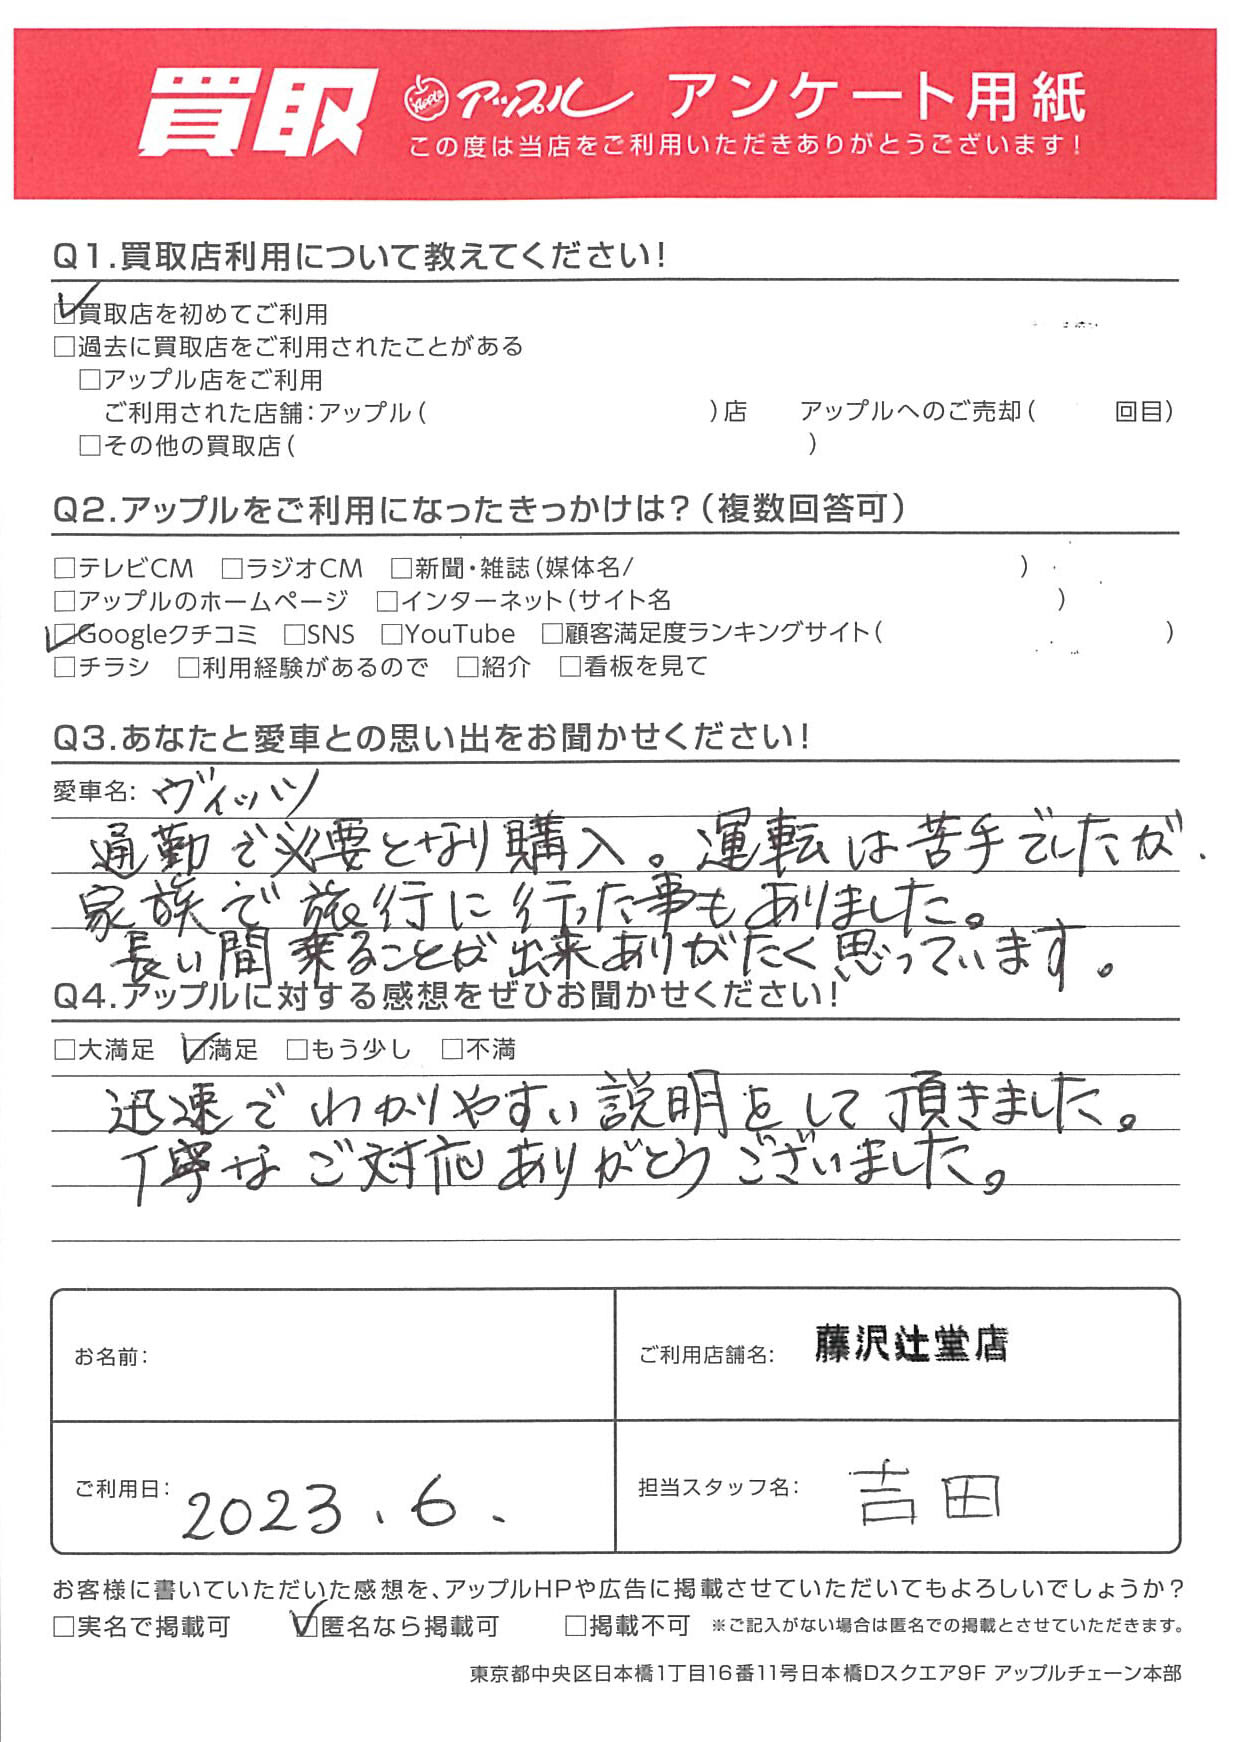 買取 Apple アップル アンケート用紙
この度は当店をご利用いただきありがとうございます!
Q1.買取店利用について教えてください!
☑買取店を初めてご利用
□過去に買取店をご利用されたことがある
□アップル店をご利用
ご利用された店舗:アップル( )店 アップルへのご売却( 回目)
□その他の買取店( )
Q2.アップルをご利用になったきっかけは?(複数回答可)
□テレビCM □ラジオCM □新聞・雑誌(媒体名/ )
□アップルのホームページ □インターネット(サイト名 )
☑Googleクチコミ □SNS □YouTube □顧客満足度ランキングサイト( )
□チラシ □利用経験があるので □紹介 □看板を見て
Q3.あなたと愛車との思い出をお聞かせください!
愛車名: ヴィッツ
通勤で必要となり購入。運転は苦手でしたが、
家族で旅行に行った事もありました。
長い間乗ることが出来ありがたく思っています。
Q4.アップルに対する感想をぜひお聞かせください!
□大満足 ☑満足 □もう少し □不満
迅速でわかりやすい説明をして頂きました。
丁寧なご対応ありがとうございました。
お名前:
ご利用店舗名: 藤沢辻堂店
ご利用日: 2023.6.
担当スタッフ名: 吉田
お客様に書いていただいた感想を、アップルHPや広告に掲載させていただいてもよろしいでしょうか?
□実名で掲載可 ☑匿名なら掲載可 □掲載不可 ※ご記入がない場合は匿名での掲載とさせていただきます。
東京都中央区日本橋1丁目16番11号日本橋Dスクエア9F アップルチェーン本部